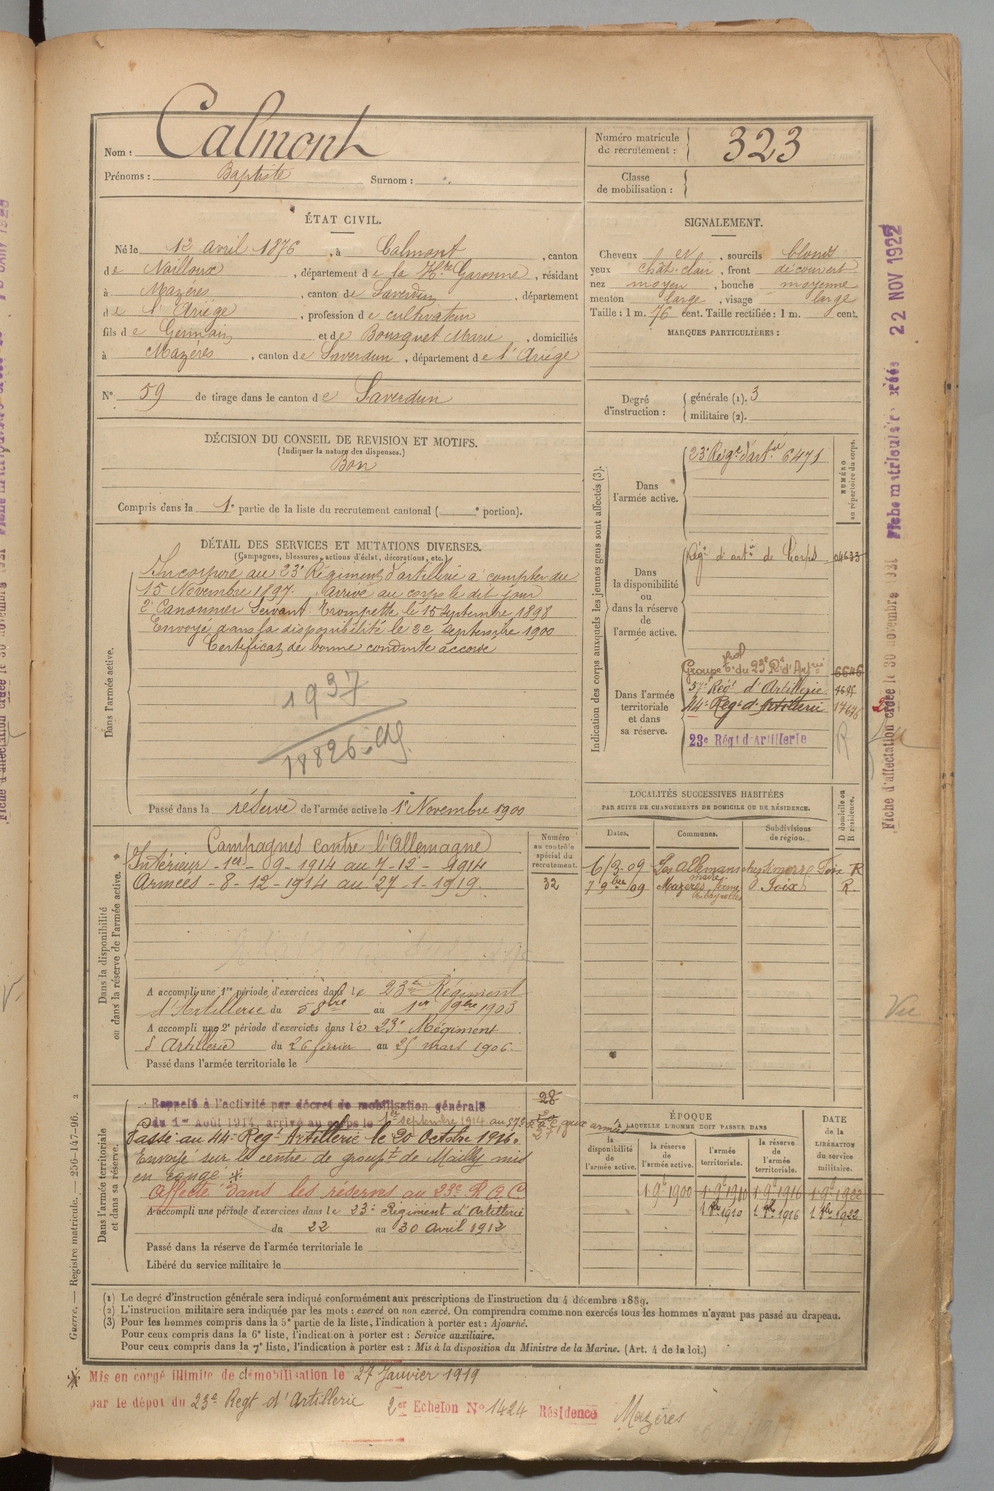 Nom : Calmont
Prénoms : Baptiste Surnom :
Numéro matricule de recrutement : 323
Classe de mobilisation :
ÉTAT CIVIL.
Né le 12 avril 1876, à Calmont, canton
de Nailloux, département de la Hte Garonne, résidant
à Mazères, canton de Saverdun, département
de l'Ariège, profession de cultivateur
fils de Germain et de Bousquet Marie, domiciliés
à Mazères, canton de Saverdun, département de l'Ariège
N° 59 de tirage dans le canton de Saverdun
SIGNALEMENT.
Cheveux et, sourcils blonds
yeux chât. clair, front découvert
nez moyen, bouche moyenne
menton large, visage large
Taille : 1 m. 76 cent. Taille rectifiée : 1 m. cent.
MARQUES PARTICULIÈRES :
Degré d'instruction : générale (1). 3
militaire (2).
DÉCISION DU CONSEIL DE REVISION ET MOTIFS.
(Indiquer la nature des dispenses.)
Bon
Compris dans la 1e partie de la liste du recrutement cantonal ( portion).
DÉTAIL DES SERVICES ET MUTATIONS DIVERSES.
(Campagnes, blessures, actions d'éclat, décorations, etc.)
Dans l'armée active.
Incorporé au 23e Régiment d'artillerie à compter du
15 Novembre 1897. arrivé au corps le dit jour
2e Canonnier Servant. Trompette le 15 Septembre 1898
Envoyé dans la disponibilité le 22 Septembre 1900
Certificat de bonne conduite accordé
1937
18826
Passé dans la réserve de l'armée active le 1er Novembre 1900
Indication des corps auxquels les jeunes gens sont affectés (3).
NUMÉRO au répertoire du corps.
Dans l'armée active.
23e Régt d'artie 6471
Dans la disponibilité ou dans la réserve de l'armée active.
Régt d'artie de Corps
Dans l'armée territoriale et dans sa réserve.
Groupe terrial du 23e Rt d'Artrie 6646
57e Régt d'Artillerie
44e Régt d'Artillerie
23e Régt d'Artillerie
LOCALITÉS SUCCESSIVES HABITÉES
PAR SUITE DE CHANGEMENTS DE DOMICILE OU DE RÉSIDENCE.
Dates. Communes. Subdivisions de région. D domicile ou R résidence.
6/3-09 Les Allemans Foix R
7 9bre 09 Mazères Foix R.
Dans la disponibilité ou dans la réserve de l'armée active.
Numéro au contrôle spécial du recrutement.
32
Campagnes contre l'Allemagne
Intérieur - 1er - 9 - 1914 au 7 - 12 - 1914
Armées - 8 - 12 - 1914 au 27 - 1 - 1919.
A accompli une 1re période d'exercices dans le 23e Régiment
d'Artillerie du au 1er 9bre 1903
A accompli une 2e période d'exercices dans le 23e Régiment
d'Artillerie du 26 février au 25 mars 1906.
Passé dans l'armée territoriale le
Dans l'armée territoriale et dans sa réserve.
Rappelé à l'activité par décret de mobilisation générale
du 1er Août 1914, arrivé au corps le 1er septembre 1914
28
Passé au 44e Régt Artillerie le 20 Octobre 1916.
Envoyé sur le centre de groupt de Mailly mis
en congé *
Affecté dans les réserves au 23e R A C
A accompli une période d'exercices dans le 23e Régiment d'Artillerie
du 22 au 30 Avril 1912
Passé dans la réserve de l'armée territoriale le
Libéré du service militaire le
ÉPOQUE
À LAQUELLE L'HOMME DOIT PASSER DANS
la disponibilité de l'armée active. la réserve de l'armée active. l'armée territoriale. la réserve de l'armée territoriale.
DATE de la LIBÉRATION du service militaire.
1 9e 1900 1 9e 1910 1 9e 1916 1 9e 1922
1910 1916 1922
(1) Le degré d'instruction générale sera indiqué conformément aux prescriptions de l'instruction du 4 décembre 1889.
(2) L'instruction militaire sera indiquée par les mots : exercé ou non exercé. On comprendra comme non exercés tous les hommes n'ayant pas passé au drapeau.
(3) Pour les hommes compris dans la 5e partie de la liste, l'indication à porter est : Ajourné.
Pour ceux compris dans la 6e liste, l'indication à porter est : Service auxiliaire.
Pour ceux compris dans la 7e liste, l'indication à porter est : Mis à la disposition du Ministre de la Marine. (Art. 4 de la loi.)
* Mis en congé illimité de démobilisation le 27 Janvier 1919
par le dépôt du 23e Regt d'Artillerie 2er Echelon N° 1424 Résidence Mazères
Guerre. — Registre matricule. — 256-147-96. 2
22 NOV 1922
Vu